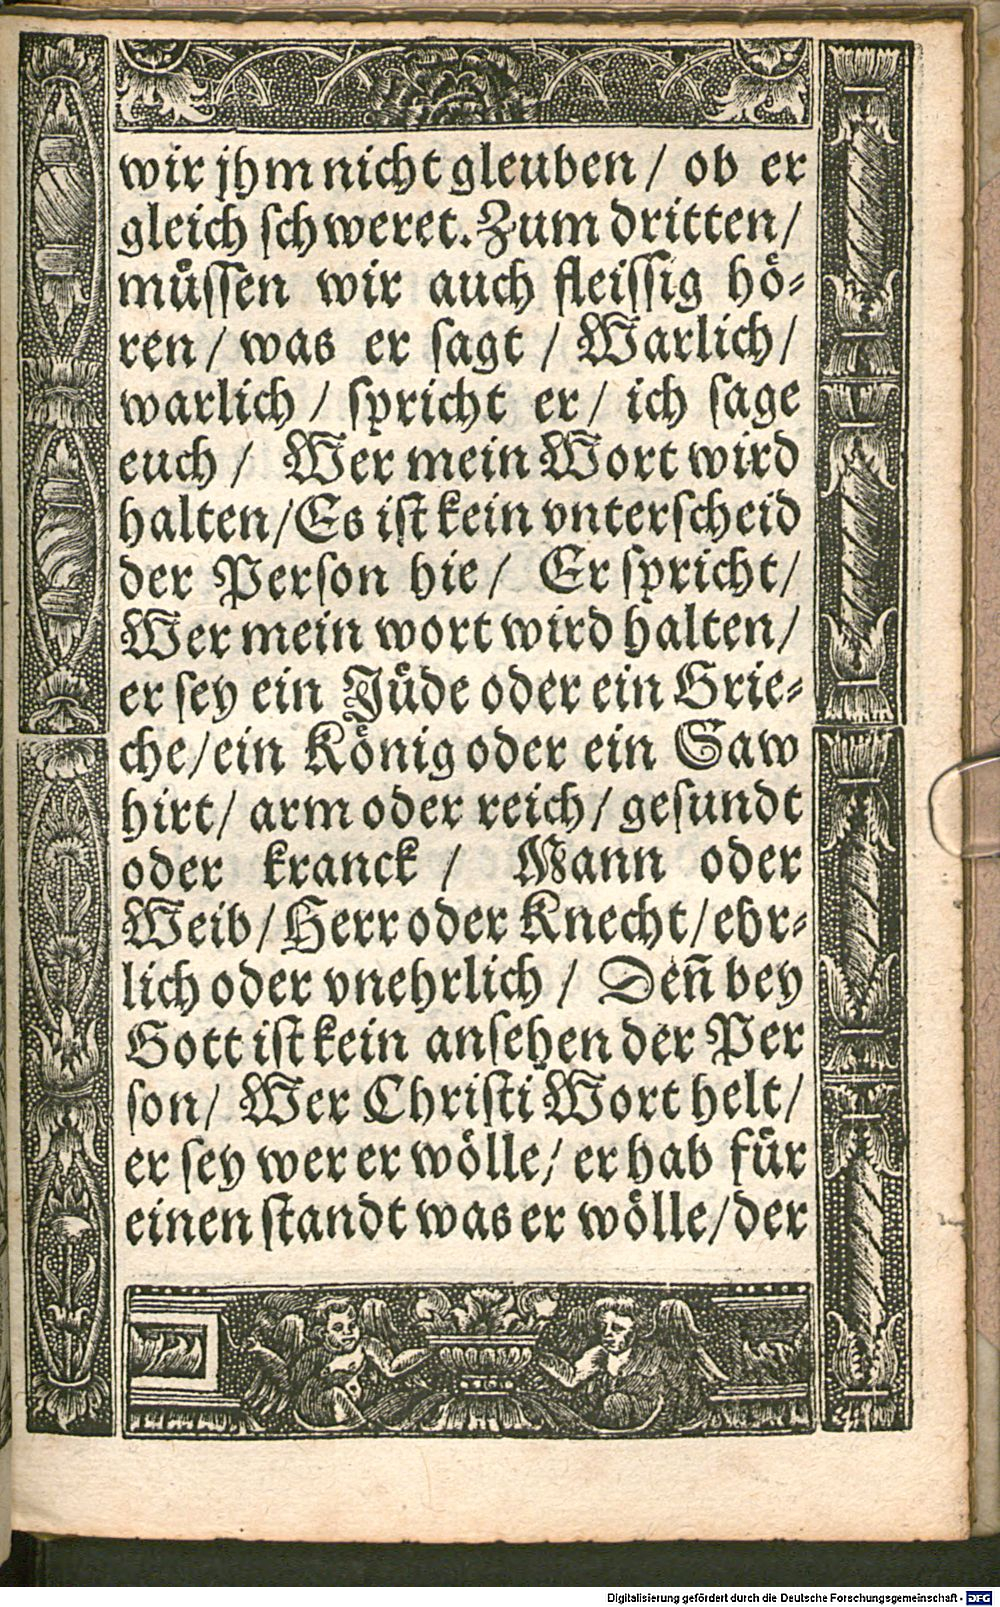 wir jhm nicht gleuben / ob er
gleich schweret. Zum dritten /
müssen wir auch fleissig hö-
ren / was er sagt / Warlich /
warlich / spricht er / ich sage
euch / Wer mein Wort wird
halten / Es ist kein vnterscheid
der Person hie / Er spricht /
Wer mein wort wird halten /
er sey ein Jüde oder ein Grie-
che / ein König oder ein Saw
hirt / arm oder reich / gesundt
oder kranck / Mann oder
Weib / Herr oder Knecht / ehr-
lich oder vnehrlich / Deñ bey
Gott ist kein ansehen der Per
son / Wer Christi Wort helt /
er sey wer er wölle / er hab für
einen standt was er wölle / der
Digitalisierung gefördert durch die Deutsche Forschungsgemeinschaft - DFG